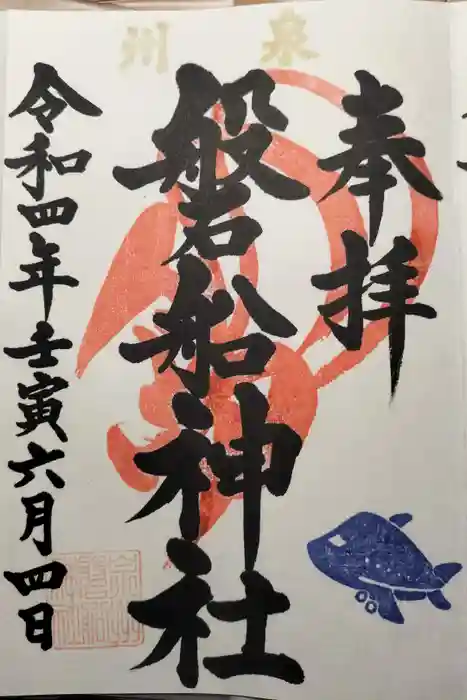 泉州
奉拝
磐船神社
令和四年壬寅六月四日